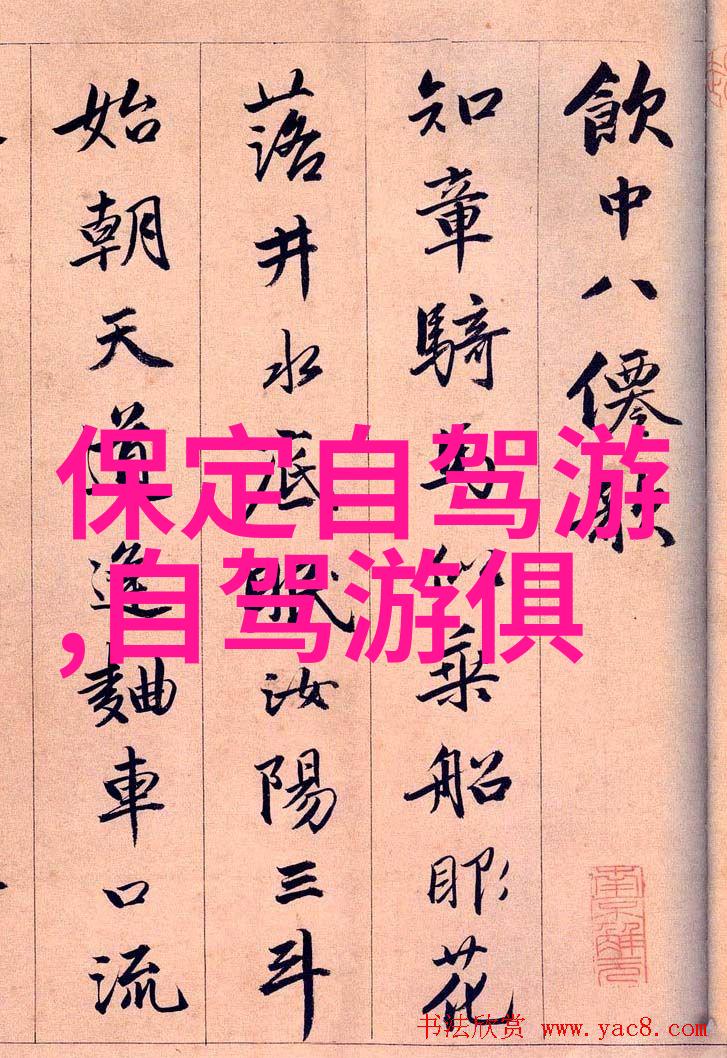 飲中八僊歌
知章騎馬似乘船眼花
落井水底眠汝陽三斗
始朝天道逢麯車口流
保定自驾游
,自驾游俱
南京解元
书法欣赏 www.yac8.com